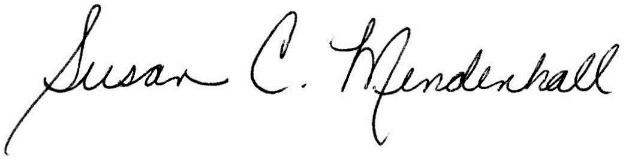 Susan C. Mendenhall